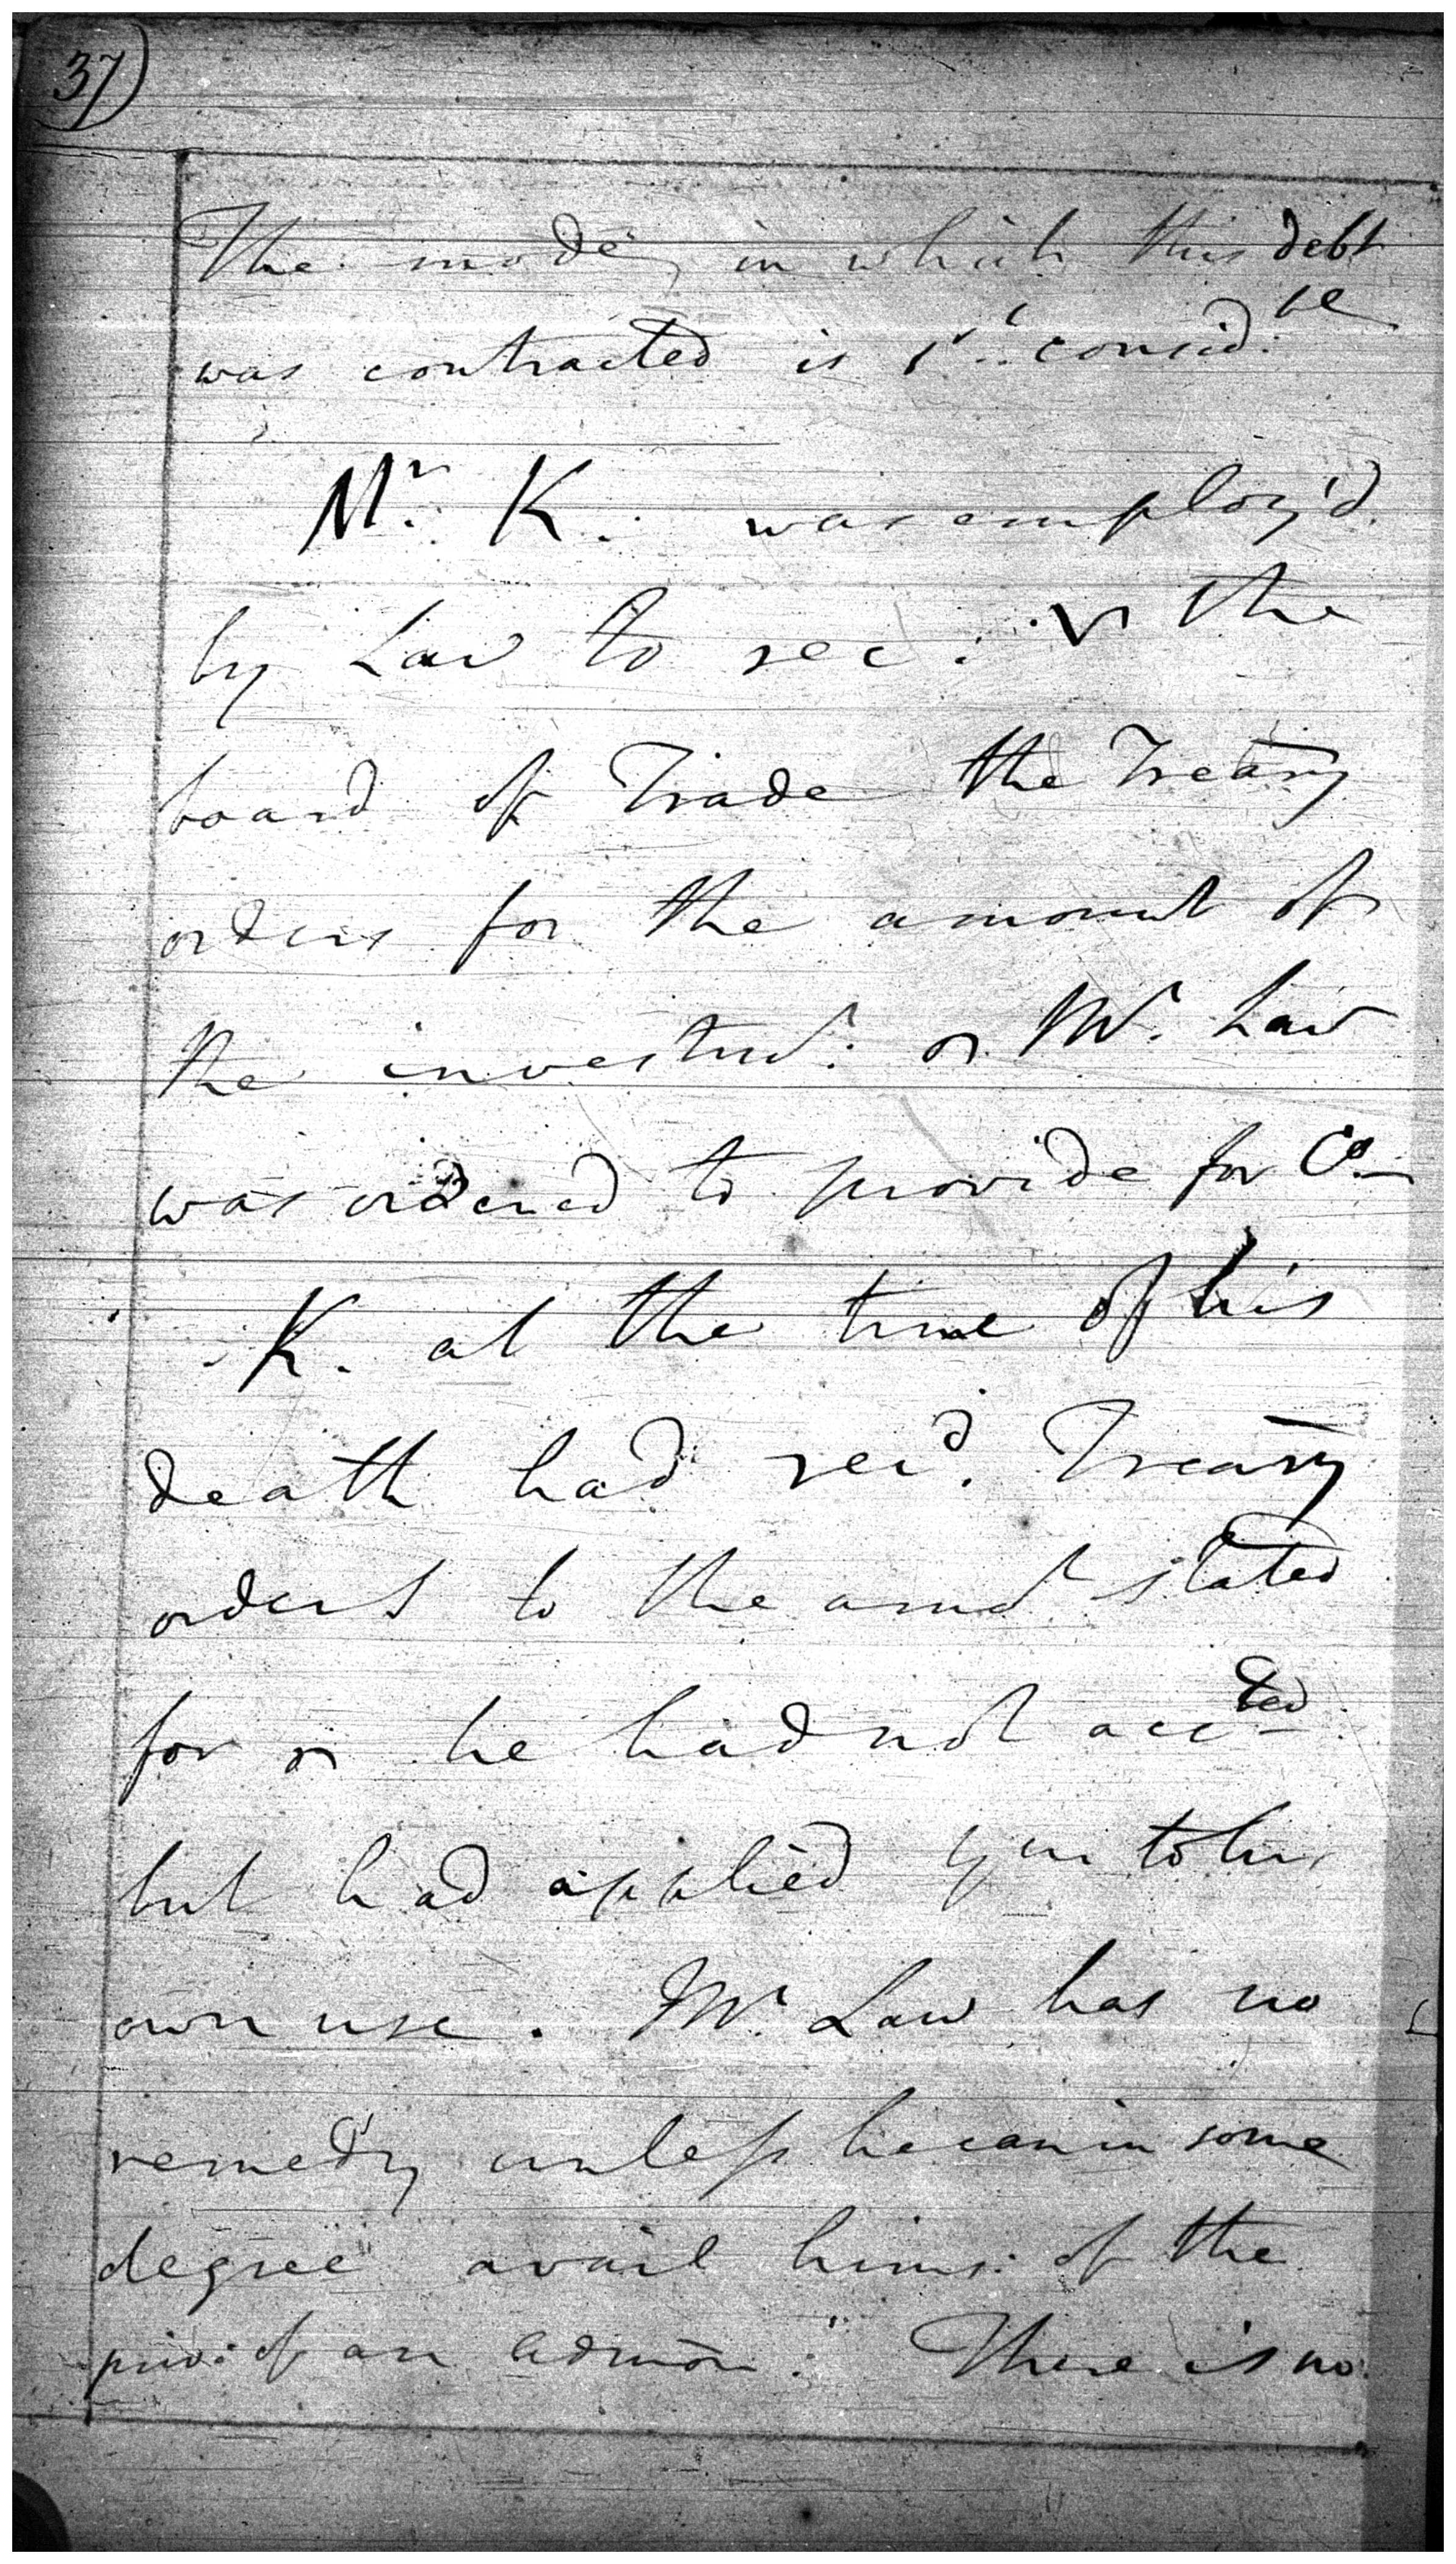 37)
The mode in which this debt
was contracted is 1st: consid:ble
Mr. K. was employ'd
by Law to rec: the
board of Trade the Treasy
orders for the amount of
the investmt: Mr. Law
was ordered to provide for Co.
K. at the time of his
death had recd. Treasy
orders to the amot stated
for he had not accted
but had applied ym to his
own use. Mr. Law has no
remedy unless he can in some
degree avail hims: of the
priv: of an admōn: There is no